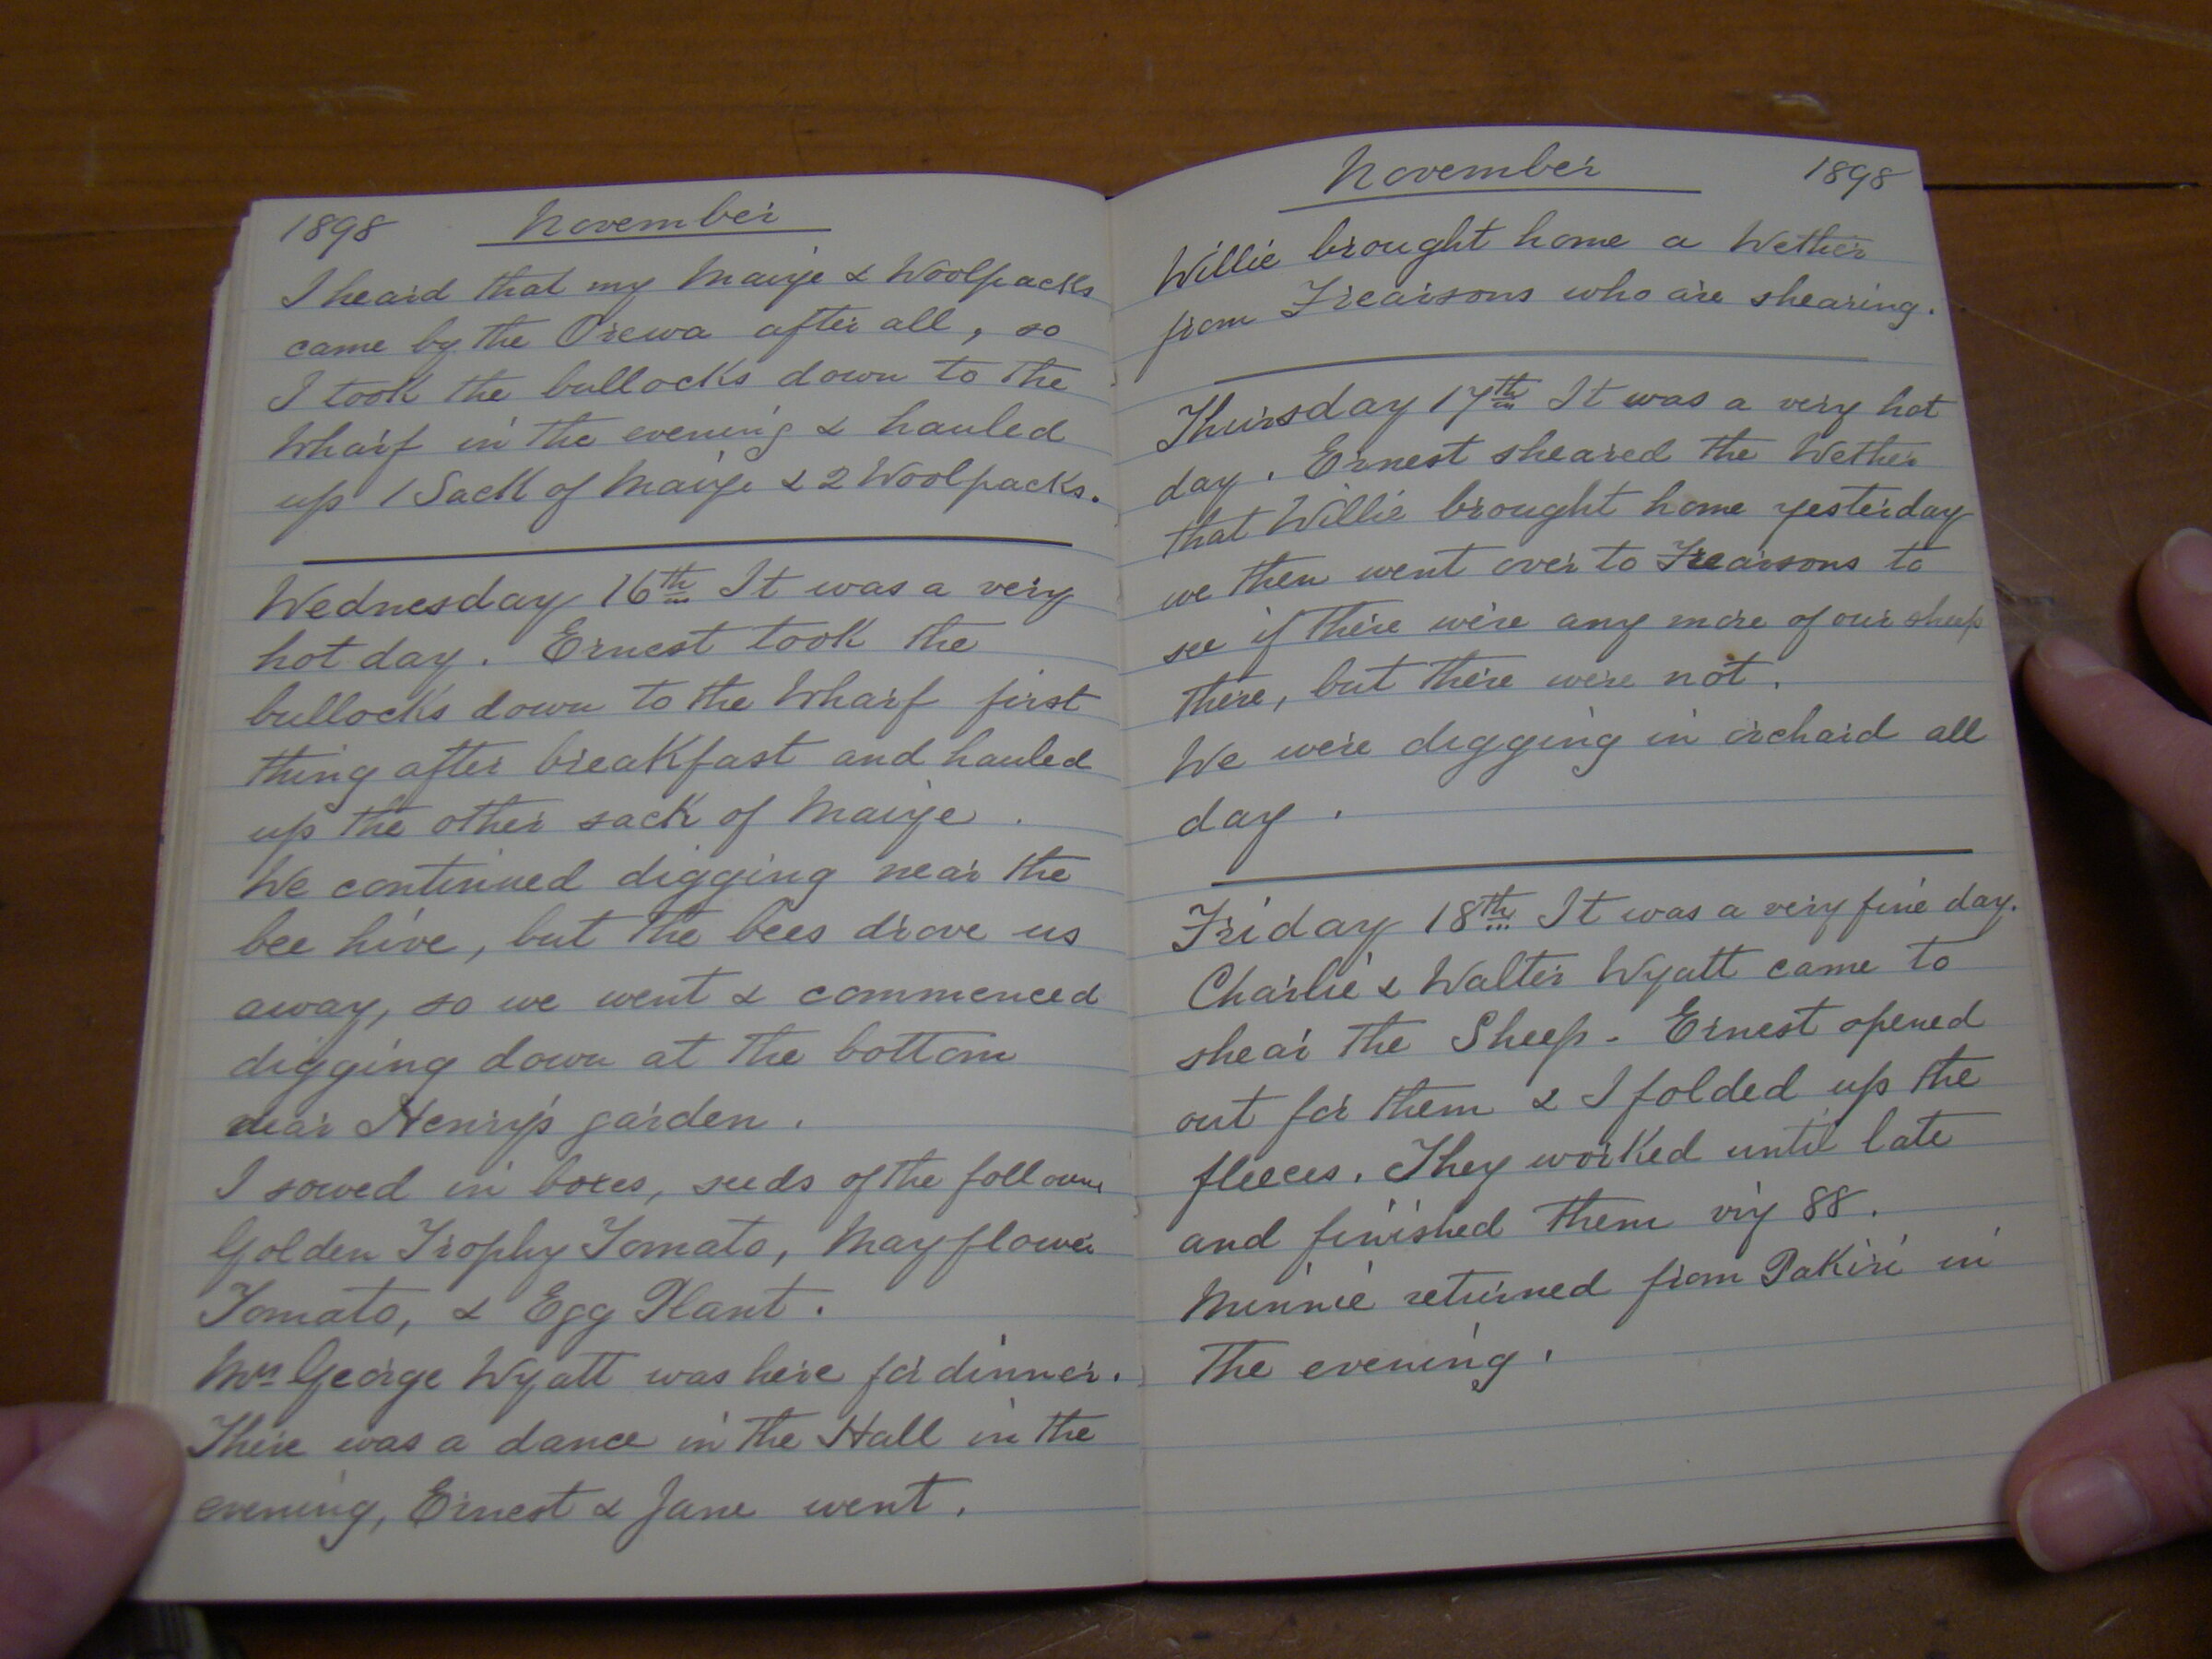 1898 November
I heard that my Maize & Woolpacks
came by the Orewa after all, so
I took the bullocks down to the
Wharf in the evening & hauled
up 1 Sack of Maize & 2 Woolpacks.
Wednesday 16th It was a very
hot day. Ernest took the
bullocks down to the Wharf first
thing after breakfast and hauled
up the other sack of Maize.
We continued digging near the
bee hive, but the bees drove us
away, so we went & commenced
digging down at the bottom
near Henry's garden.
I sowed in boxes, seeds of the
Golden Trophy Tomato, Mayflower
Tomato, & Egg Plant.
Mrs George Wyatt was here for dinner.
There was a dance in the Hall in the
evening, Ernest & Jane went.
November 1898
Willie brought home a Wether
from Frearsons who are shearing.
Thursday 17th It was a very hot
day. Ernest sheared the Wether
that Willie brought home yesterday
we then went over to Frearsons to
see if there were any more of our sheep
there, but there were not.
We were digging in orchard all
day.
Friday 18th It was a very fine day.
Charlie & Walter Wyatt came to
shear the Sheep - Ernest opened
out for them & I folded up the
fleeces. They worked until late
and finished them viz 88.
Minnie returned from Pakiri in
the evening.